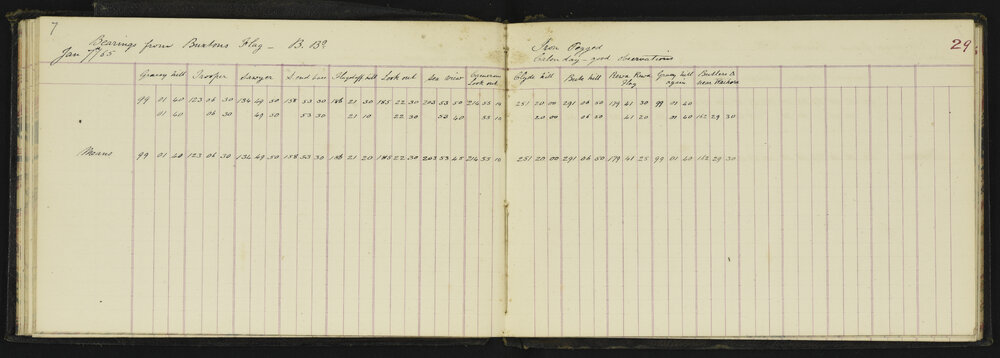 7
Bearings from Buxtons Flag - B. Bᵈ
Jan 7/65
Iron Pegged
Calm day - good observations
29
Grassy hill Trooper Sawyer S. end base Flagstaff hill Look out Sea View Cameron Look out Clyde hill Bests hill Rewa Rewa Flag Grassy hill again Butlers B near Waihora
99 01 40 123 06 30 134 49 50 158 53 30 186 21 30 185 22 30 203 53 50 214 55 10 251 20 00 291 06 50 179 41 30 99 01 40
01 40 06 30 49 50 53 30 21 10 22 30 53 40 55 10 20 00 06 50 41 20 01 40 162 29 30
Means 99 01 40 123 06 30 134 49 50 158 53 30 186 21 20 185 22 30 203 53 45 214 55 10 251 20 00 291 06 50 179 41 25 99 01 40 162 29 30